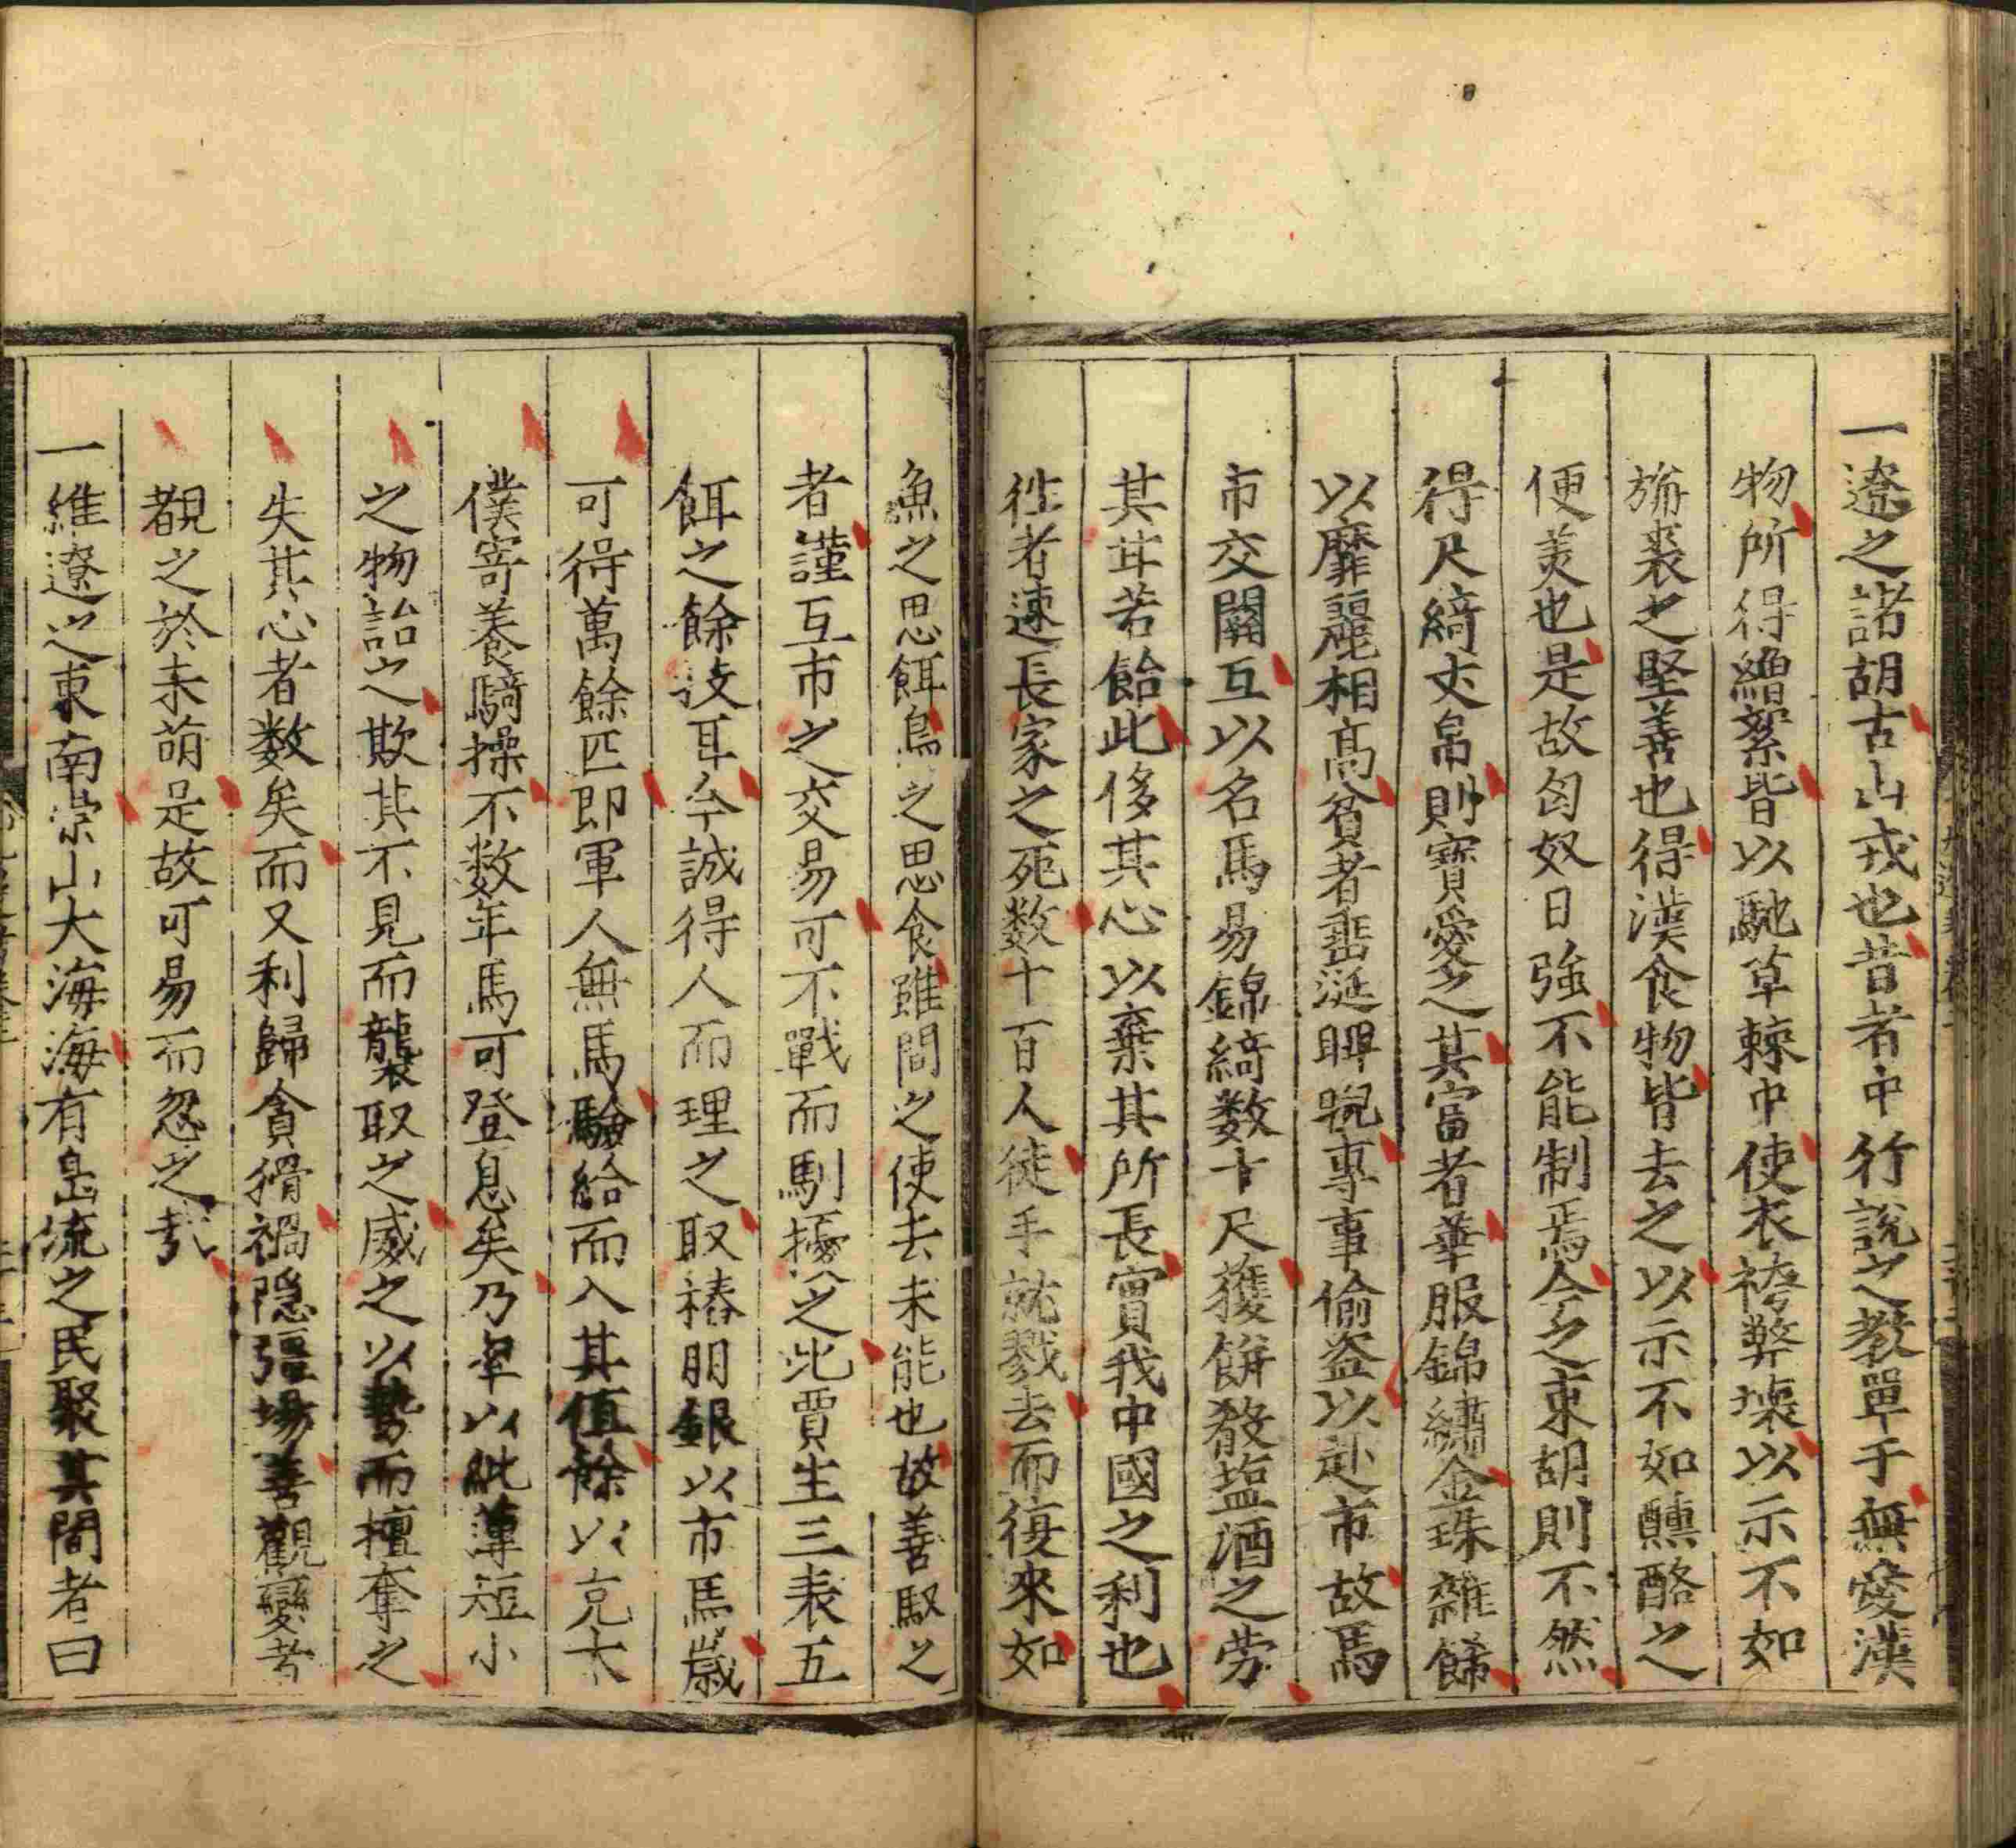 一遼之諸胡古山戎也昔者中行説之教單于無愛漢
物所得繒絮皆以馳草棘中使衣袴弊壊以示不如
旃裘之堅善也得漢食物皆去之以示不如醺酪之
便美也是故匈奴日強不能制焉今之東胡則不然
得尺綺丈帛則寶愛之其富者華服錦繡金珠雜餙
以靡麗相髙貧者垂涎睅睨專事偷盗以赴市故馬
市交關互以名馬易錦綺数十尺獲餅殽塩酒之劳
其甘若飴此侈其心以棄其所長實我中國之利也
徃者速長家之死数十百人徒手就戮去而復來如
魚之思餌鳥之思食雖間之使去未能也故善馭之
者謹互市之交易可不戰而馴擾之此賈生三表五
餌之餘技耳今誠得人而理之取樁朋銀以市馬歳
可得萬餘匹即軍人無馬驗給而入其值餘以克大
僕寄養騎操不数年馬可登息矣乃牽以紕薄短小
之物詒之欺其不見而襲取之威之以勢而擅奪之
失其心者数矣而又利歸貪猾禍隠疆場善觀變者
覩之於未萌是故可易而忽之哉
一維遼之東南崇山大海海有島流之民聚其間者曰